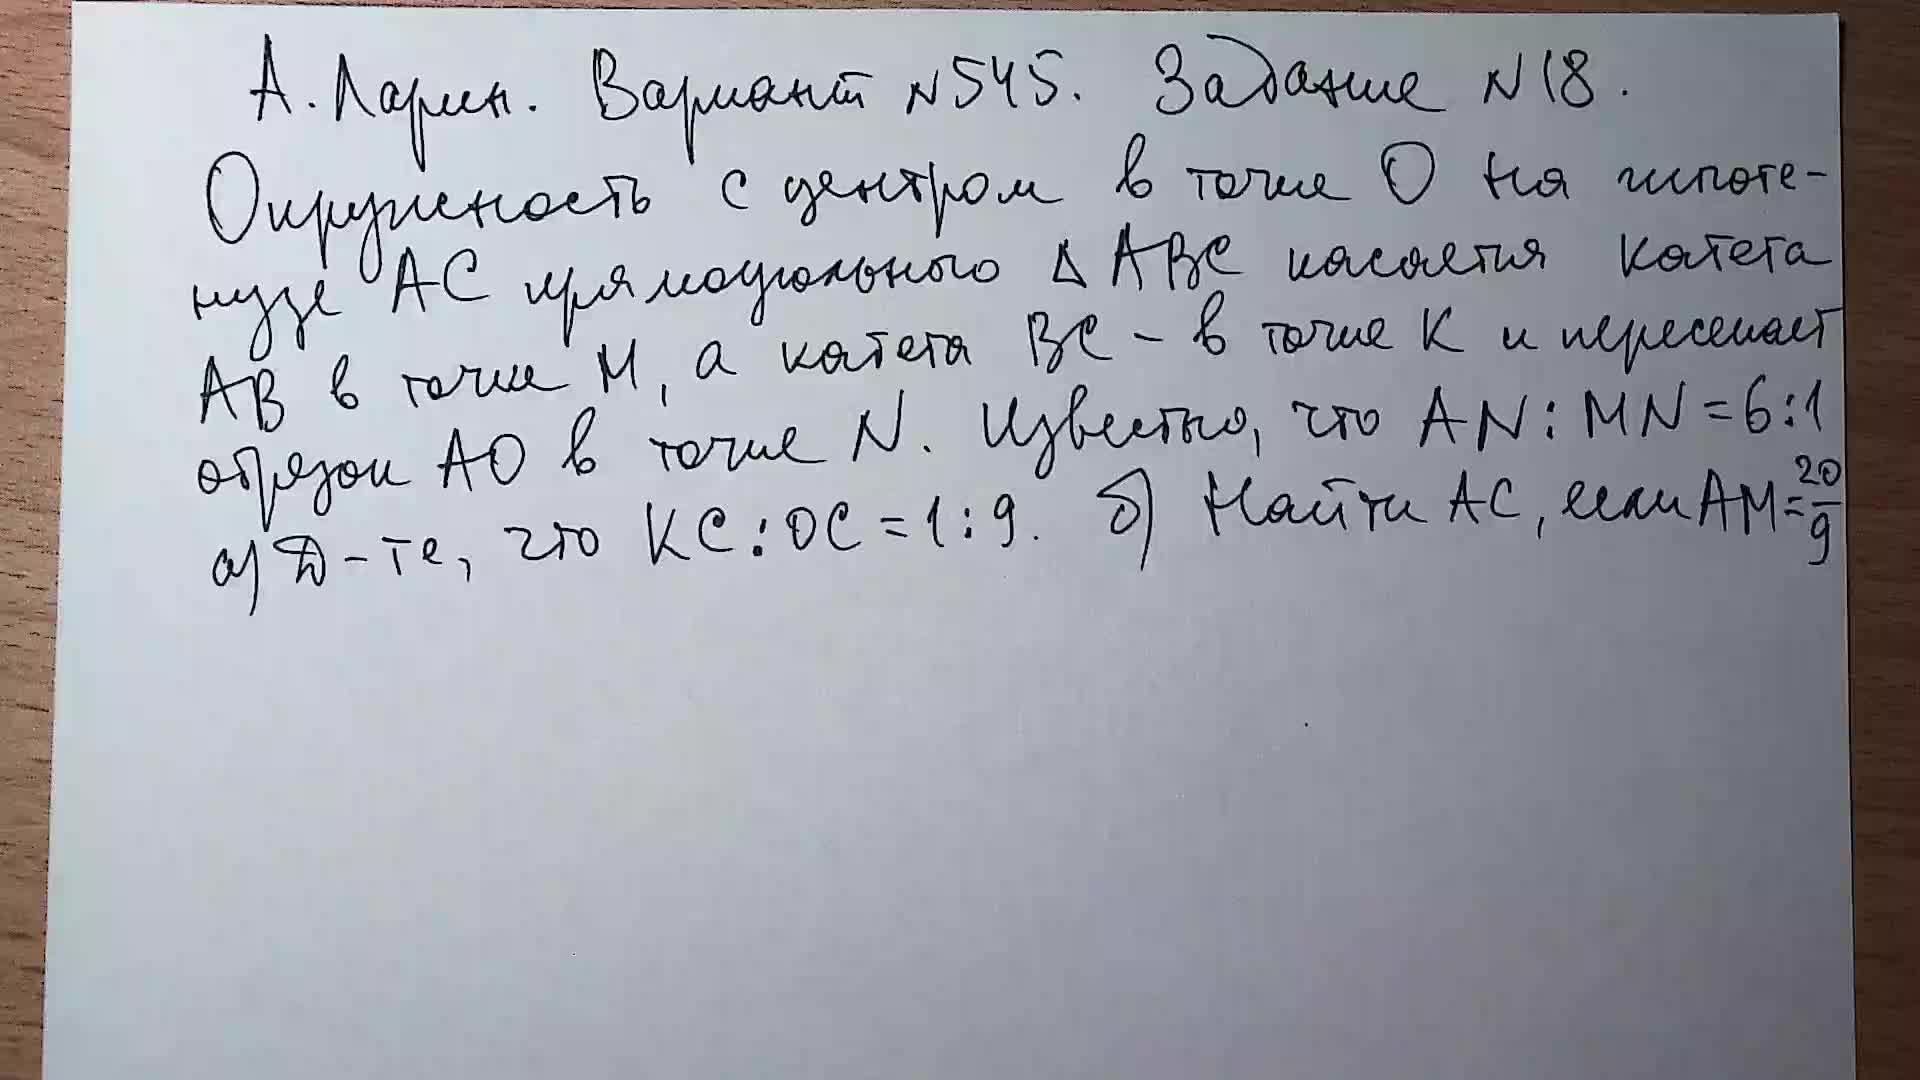 А. Ларин. Вариант №545. Задание №18.
Окружность с центром в точке О на гипоте-
нузе АС прямоугольного △АВС касается катета
АВ в точке М, а катета ВС – в точке К и пересекает
отрезок АО в точке N. Известно, что AN:MN=6:1
а) Д-те, что KC:OC=1:9. б) Найти АС, если AM=20/9